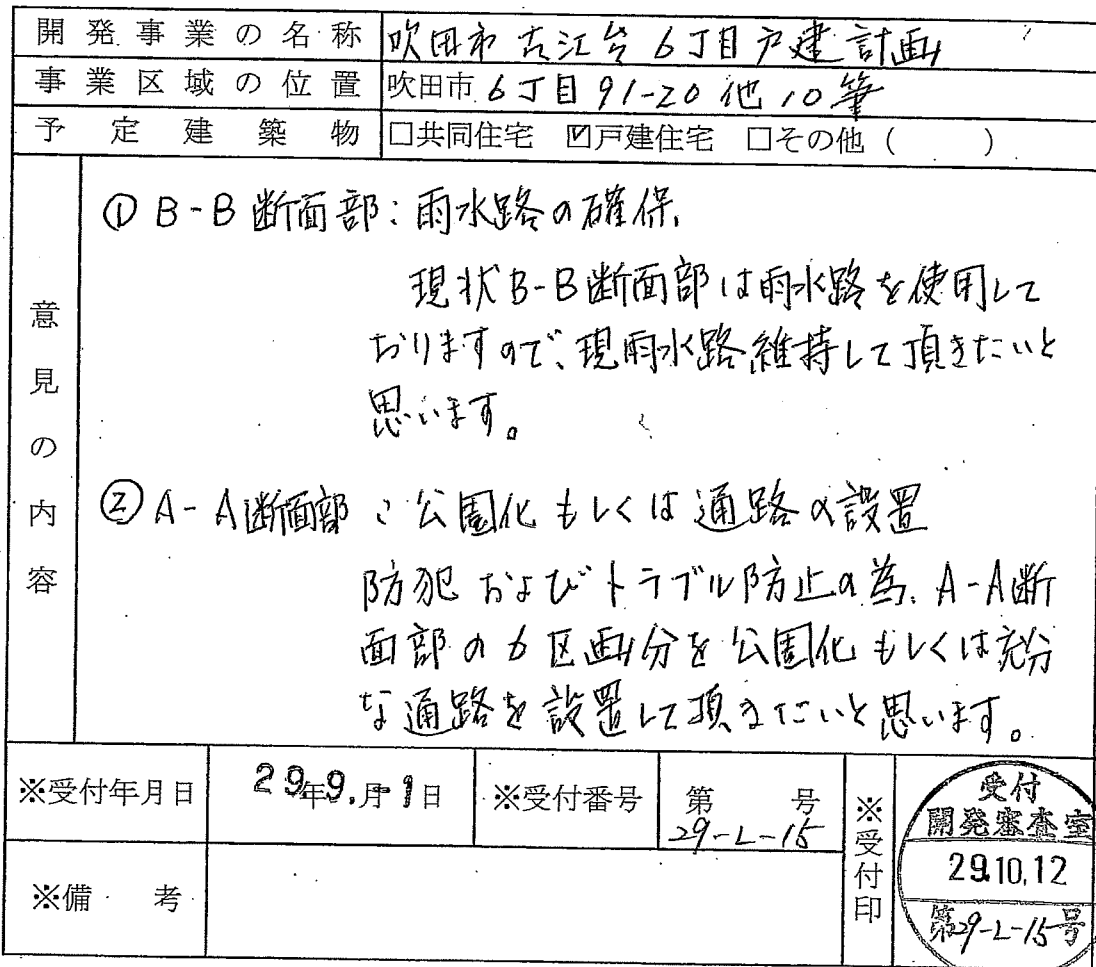 開発事業の名称 吹田市古江台6丁目戸建計画
事業区域の位置 吹田市6丁目91-20他10筆
予定建築物 □共同住宅 ☑戸建住宅 □その他（ ）
意見の内容
① B-B断面部：雨水路の確保、
現状B-B断面部は雨水路を使用して
おりますので、現雨水路維持して頂きたいと
思います。
② A-A断面部：公園化もしくは通路の設置
防犯およびトラブル防止の為、A-A断
面部の6区画分を公園化もしくは充分
な通路を設置して頂きたいと思います。
※受付年月日 29年9.月-1日 ※受付番号 第 号
29-L-15
※受付印
受付
開発審査室
29.10.12
第29-L-15号
※備 考